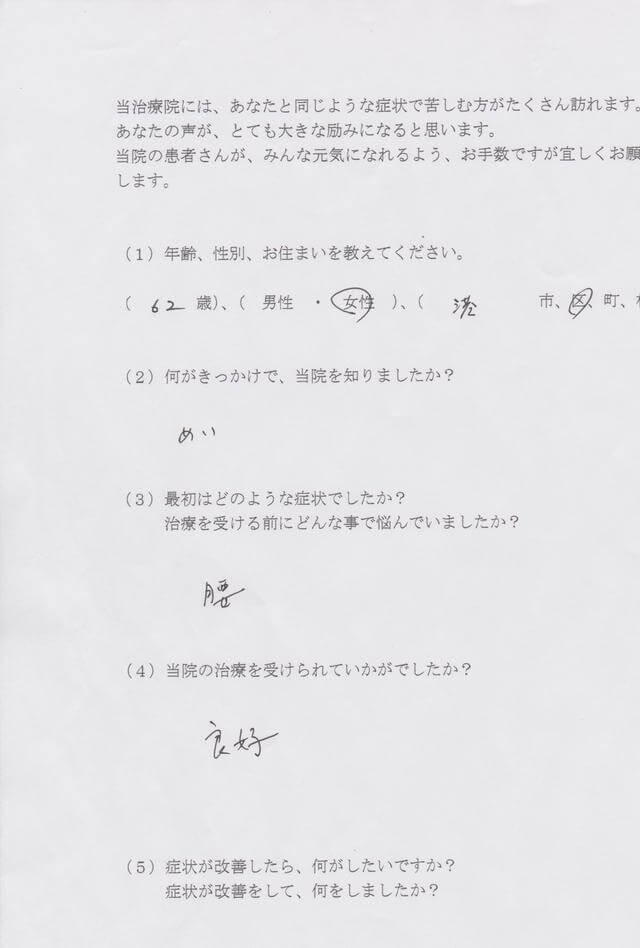 当治療院には、あなたと同じような症状で苦しむ方がたくさん訪れます。
あなたの声が、とても大きな励みになると思います。
当院の患者さんが、みんな元気になれるよう、お手数ですが宜しくお願
します。
（1）年齢、性別、お住まいを教えてください。
（ 62 歳）、（ 男性 ・ 女性 ）、（ 港 市、区、町、
（2）何がきっかけで、当院を知りましたか？
めい
（3）最初はどのような症状でしたか？
治療を受ける前にどんな事で悩んでいましたか？
腰
（4）当院の治療を受けられていかがでしたか？
良好
（5）症状が改善したら、何がしたいですか？
症状が改善をして、何をしましたか？